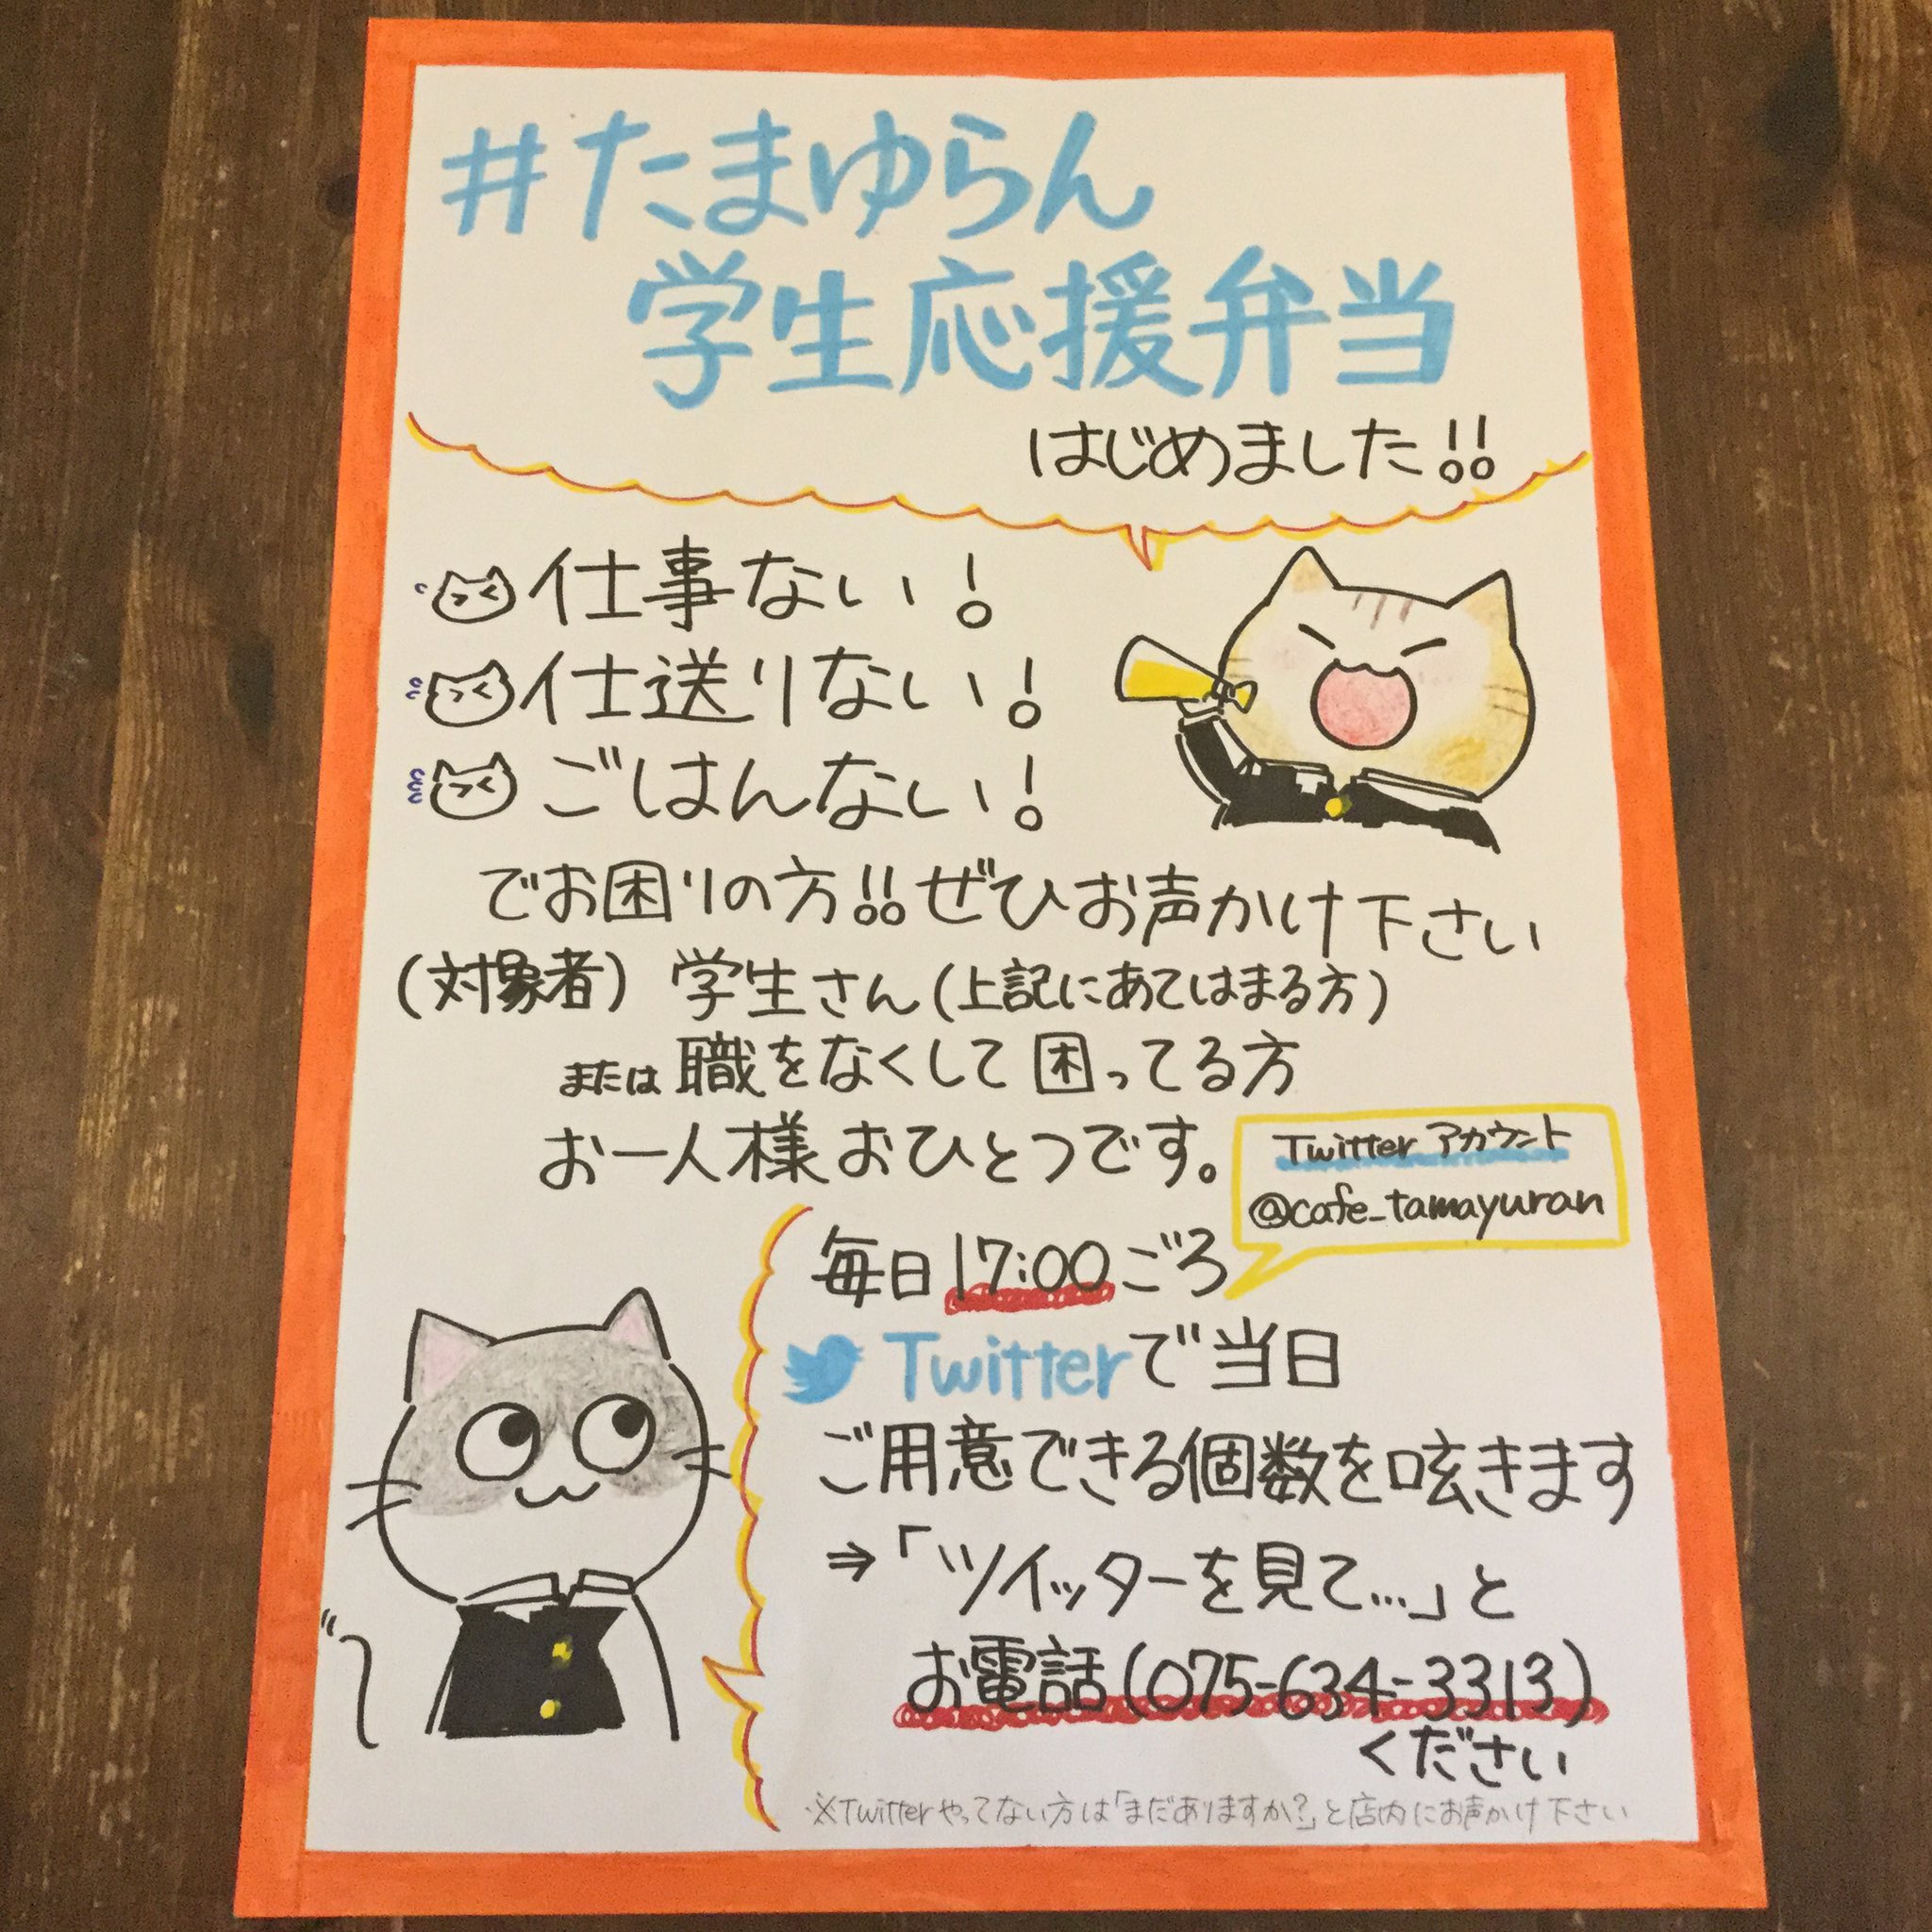 #たまゆらん
学生応援弁当
はじめました!!
仕事ない!
仕送りない!
ごはんない!
でお困りの方!!ぜひお声かけ下さい
(対象者) 学生さん(上記にあてはまる方)
または職をなくして困ってる方
お一人様おひとつです。
Twitterアカウント
@cafe_tamayuran
毎日17:00ごろ
Twitterで当日
ご用意できる個数を呟きます
⇒「ツイッターを見て…」と
お電話(075-634-3313)
ください
※Twitterやってない方は「まだありますか?」と店内にお声かけ下さい